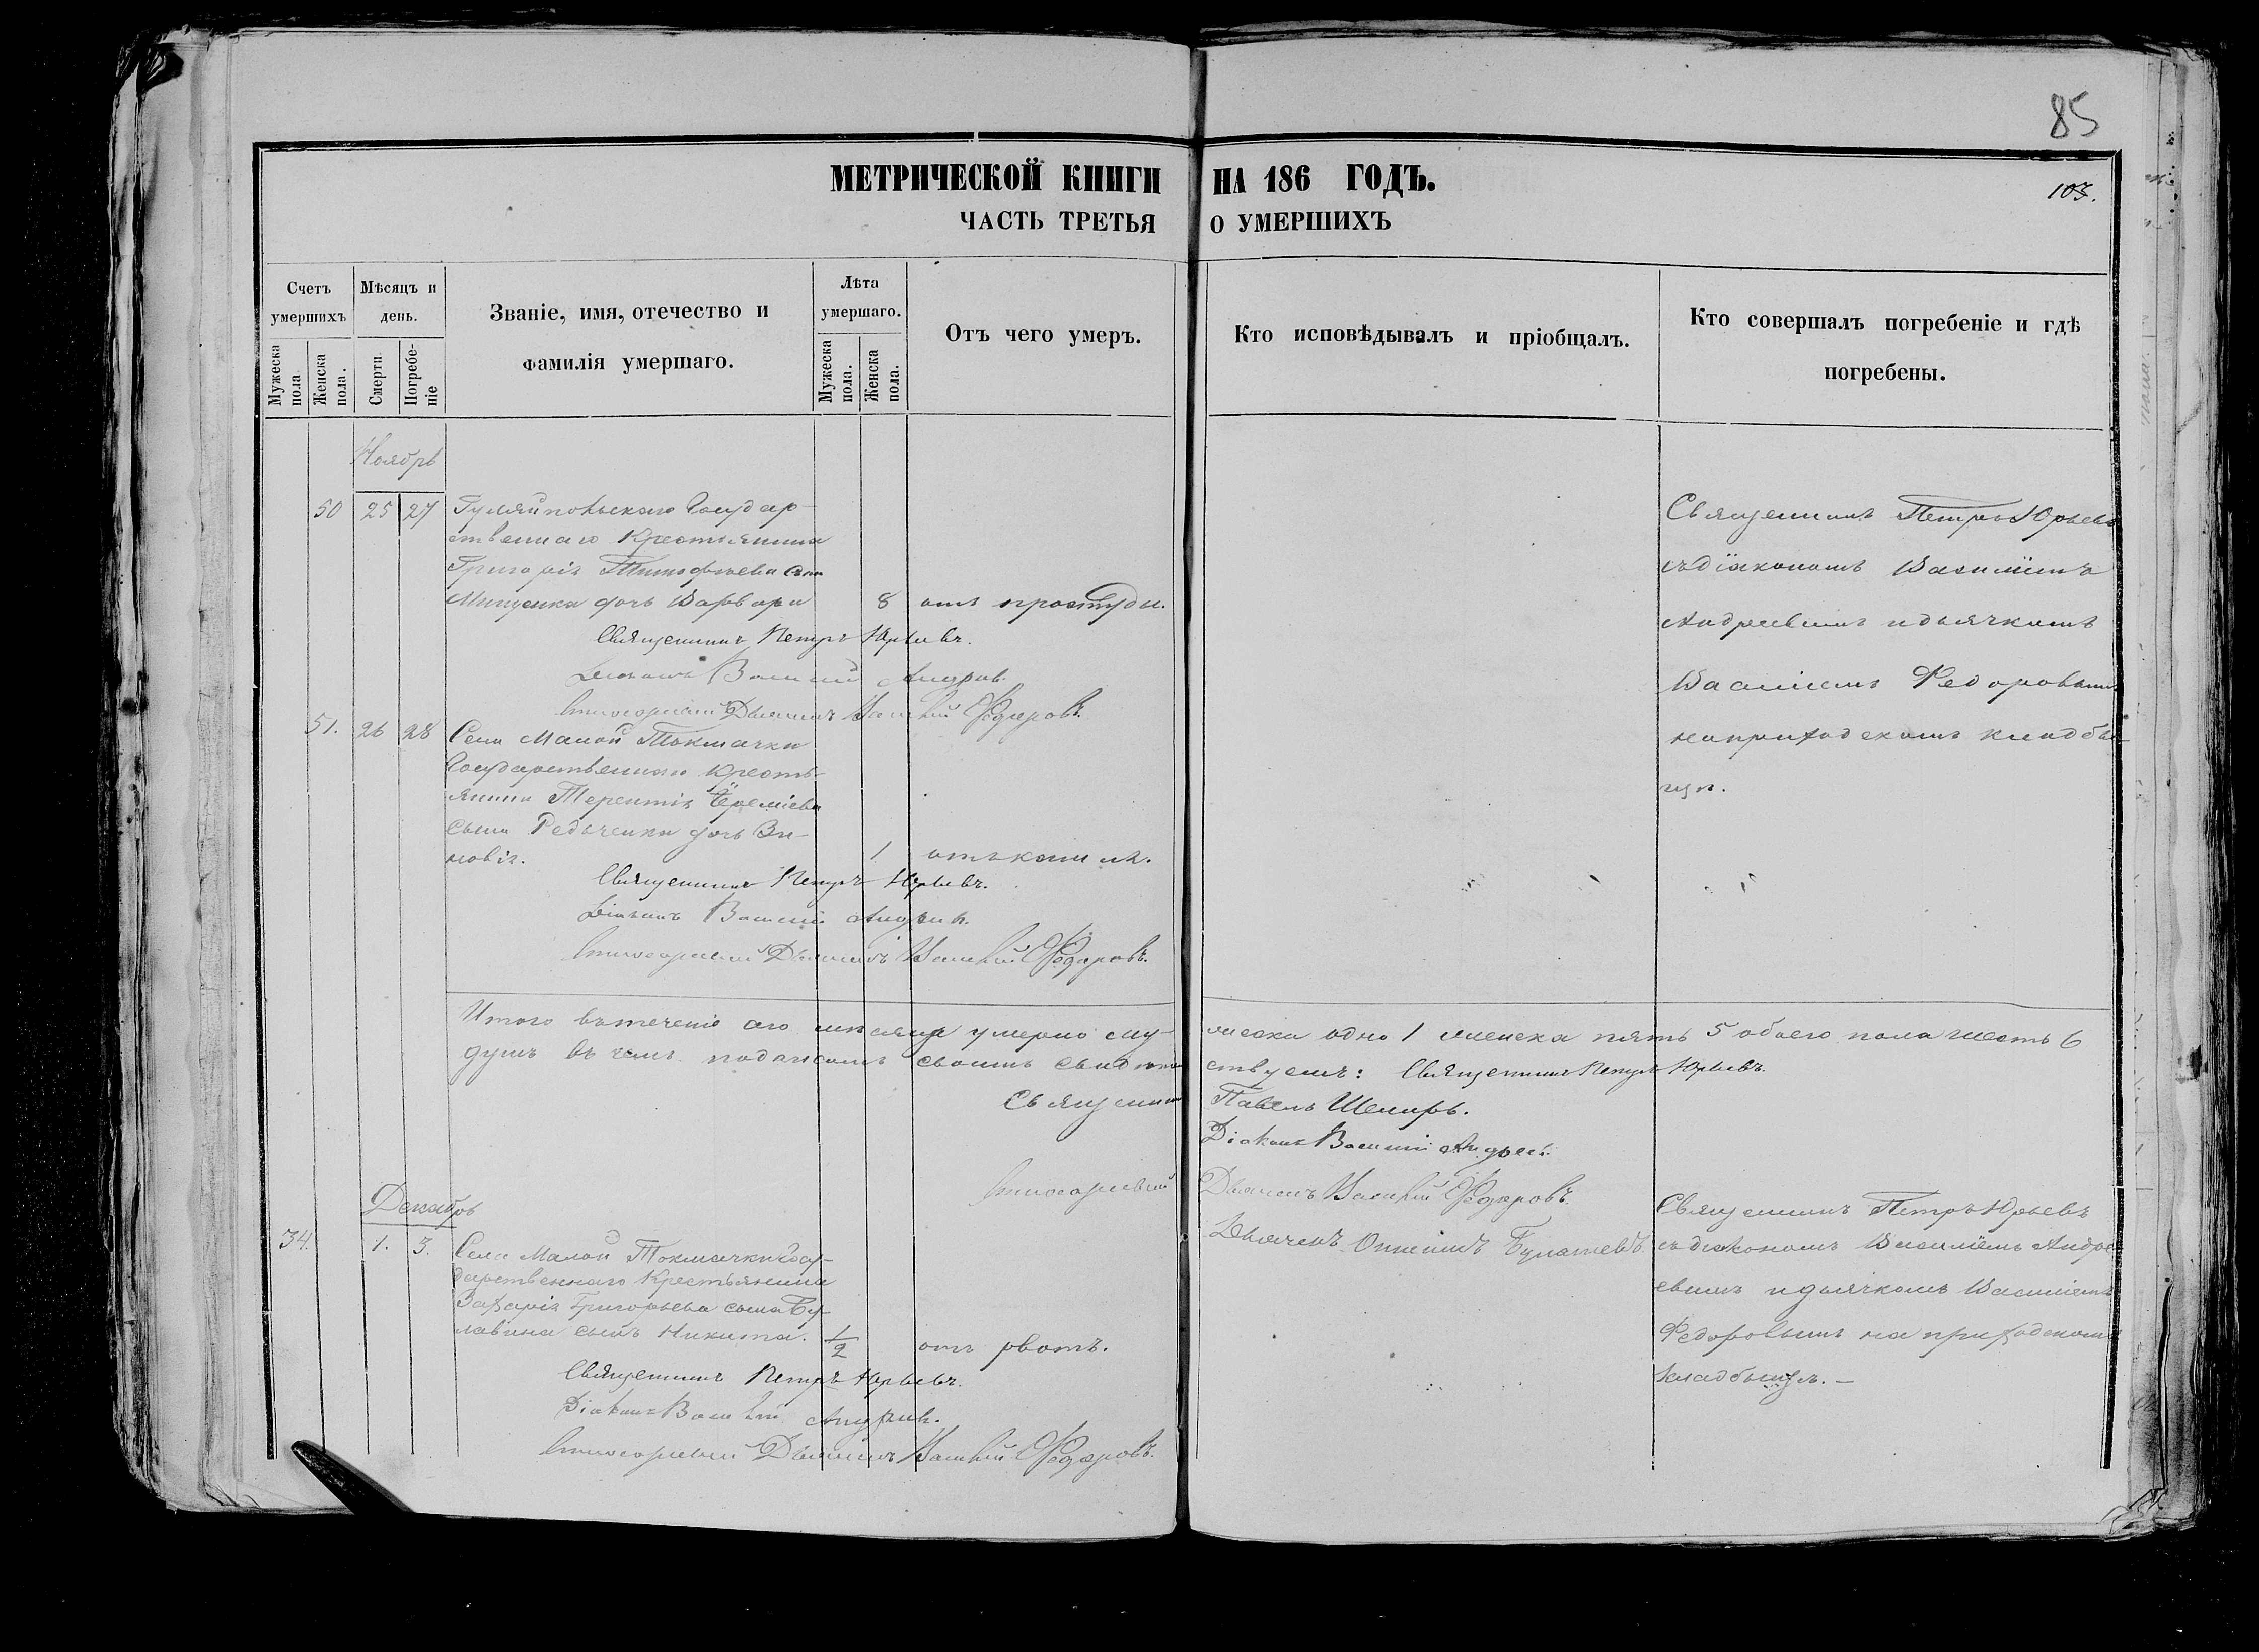 85
МЕТРИЧЕСКОЙ КНИГИ НА 186 ГОДЪ.
103.
ЧАСТЬ ТРЕТЬЯ О УМЕРШИХЪ
Счетъ умершихъ
Мужеска пола
Женска пола.
Мѣсяцъ и день.
Смерти
Погребеніе
Званіе, имя, отечество и фамилія умершаго.
Лѣта умершаго.
Мужеска пола.
Женска пола.
Отъ чего умеръ.
Кто исповѣдывалъ и пріобщалъ.
Кто совершалъ погребеніе и гдѣ погребены.
Ноябрь
50 25 27 Гуляйпольскаго Государ-
ственнаго Крестьянина
Григорія Тимофѣева сына
Мищенка дочь Варвара 8 отъ простуды.
Священникъ Петръ Юрьевъ
съ діакономъ Василіемъ
Андреевымъ и дьячкомъ
Василіемъ Федоровымъ
на приходскомъ кладби-
щѣ.
Священникъ Петръ Юрьевъ.
Діаконъ Василій Андреев.
Дьячекъ Василій Федоровъ.
51. 26 28 Села Малой Токмачки
Государственнаго Кресть-
янина Терентія Еремієва
сына Редьченки дочь Зи-
новія. 1 отъ кашля.
Священникъ Петръ Юрьевъ.
Діаконъ Василій Андреев.
Дьячекъ Василій Федоровъ.
Итого въ теченіе сего мѣсяца умерло му- жеска одно 1 женска пять 5 обоего пола шесть 6
душъ въ чемъ подписомъ своимъ свидѣтель ствуемъ: Священникъ Петръ Юрьевъ.
Священникъ Павелъ Шемиръ.
Діаконъ Василій Андреев.
Дьячекъ Василій Федоровъ.
Дьячекъ
Декабрь
34. 1. 3. Села Малой Токмачки Госу-
дарственнаго Крестьянина
Захарія Григорьева сына Бу-
лавина сынъ Никита. 1/2 отъ рвотъ.
Священникъ Петръ Юрьевъ
съ діакономъ Василіемъ Андре-
евымъ и дьячкомъ Василіемъ
Федоровымъ на приходскомъ
кладбищѣ. —
Священникъ Петръ Юрьевъ.
Діаконъ Василій Андреев.
Дьячекъ Василій Федоровъ.